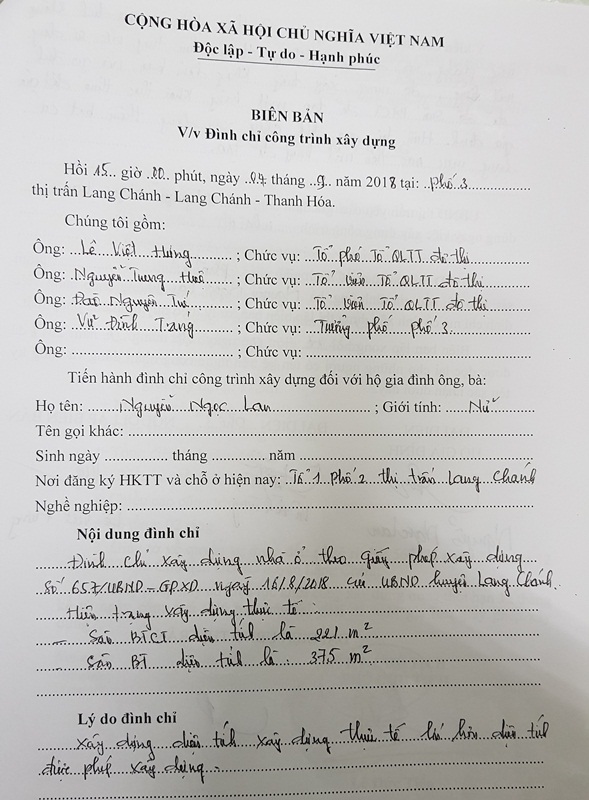 CỘNG HÒA XÃ HỘI CHỦ NGHĨA VIỆT NAM
Độc lập - Tự do - Hạnh phúc
BIÊN BẢN
V/v Đình chỉ công trình xây dựng
Hồi 15 giờ 00 phút, ngày 07 tháng 9 năm 2018 tại: phố 3
thị trấn Lang Chánh - Lang Chánh - Thanh Hóa.
Chúng tôi gồm:
Ông: Lê Việt Hùng ; Chức vụ: Tổ phó Tổ QLTT đô thị
Ông: Nguyễn Trung Thuê ; Chức vụ: Tổ viên Tổ QLTT đô thị
Ông: Nguyễn Tú ; Chức vụ: Tổ viên Tổ QLTT đô thị
Ông: Vũ Đình Trạng ; Chức vụ: Trưởng phố phố 3
Ông: ; Chức vụ:
Tiến hành đình chỉ công trình xây dựng đối với hộ gia đình ông, bà:
Họ tên: Nguyễn Ngọc Lan ; Giới tính: Nữ
Tên gọi khác:
Sinh ngày tháng năm
Nơi đăng ký HKTT và chỗ ở hiện nay: Tổ 1 phố 2 thị trấn Lang Chánh
Nghề nghiệp:
Nội dung đình chỉ
Đình chỉ xây dựng nhà ở theo giấy phép xây dựng
Số 657/UBND-GPXD ngày 16/8/2018 của UBND huyện Lang Chánh.
Hiện trạng xây dựng thực tế
- Sàn BTCT diện tích là 221 m²
- Sàn BT diện tích là 375 m²
Lý do đình chỉ
xây dựng diện tích xây dựng thực tế lớn hơn diện tích
được phép xây dựng.